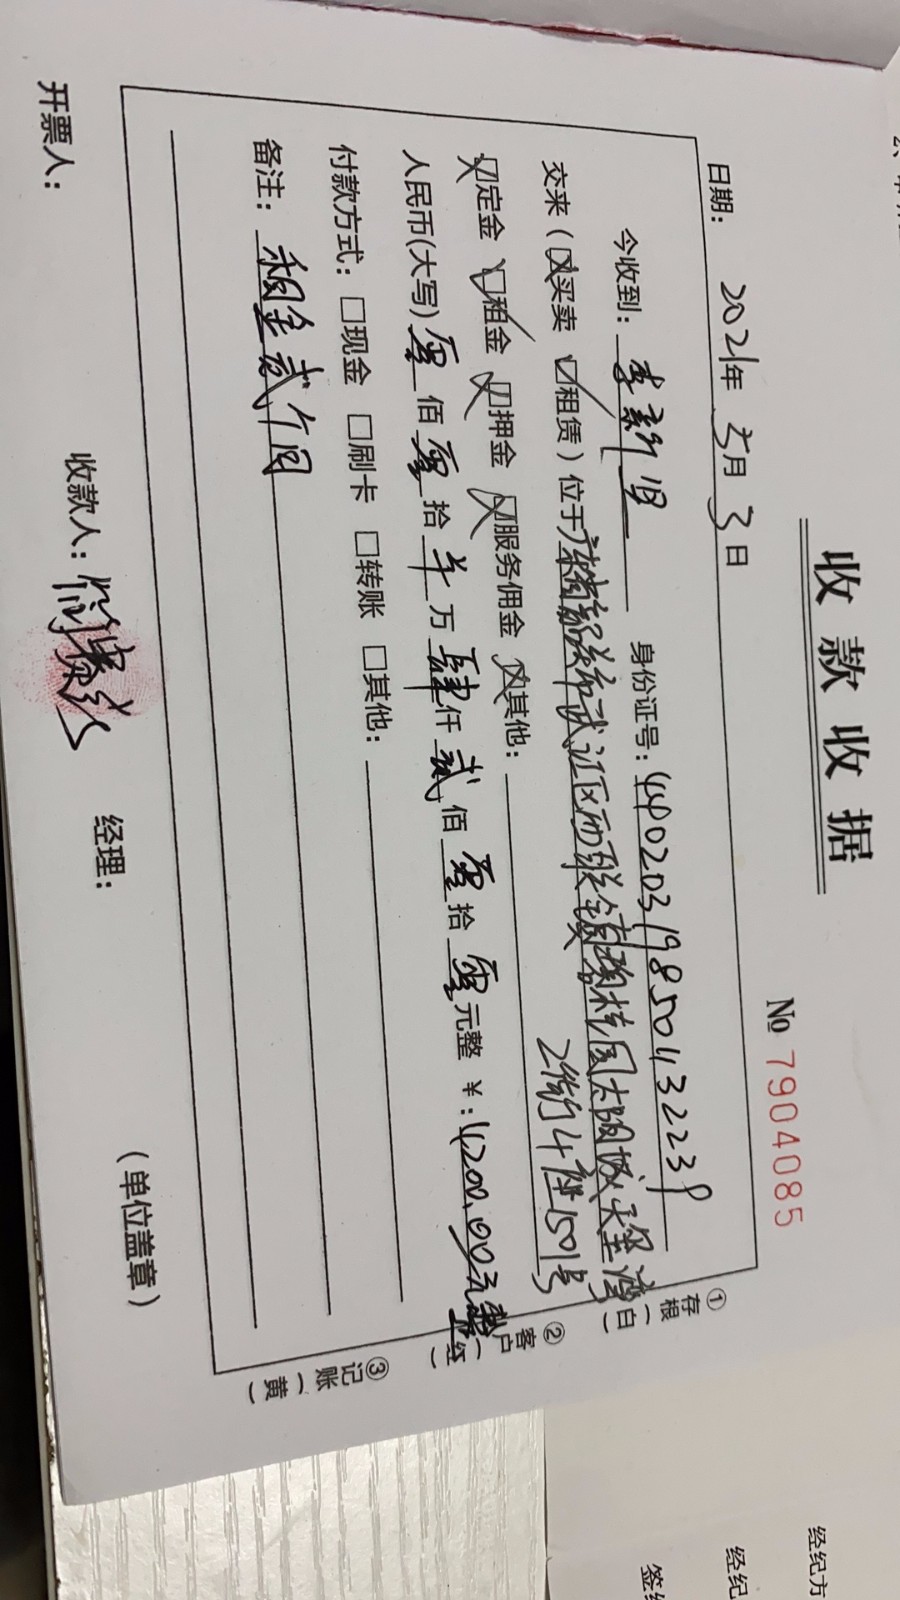 收款收据
№ 7904085
日期： 2021年 3月 3日
今收到： 身份证号：440203198504132239
交来（☒买卖 ☑租赁）位于广东省韶关市武江区西联镇碧桂园太阳城天玺湾
2街4座1501号
☒定金 ☑租金 ☒押金 ☒服务佣金 ☒其他：
人民币(大写) 零 佰 零 拾 万 肆 仟 贰 佰 零 拾 零 元整 ¥：4200.00元整
付款方式：□现金 □刷卡 □转账 □其他：
备注： 租金贰个月
开票人： 收款人： 经理： （单位盖章）
①存根（白）
②客户（红）
③记账（黄）
经纪方
经纪
签约